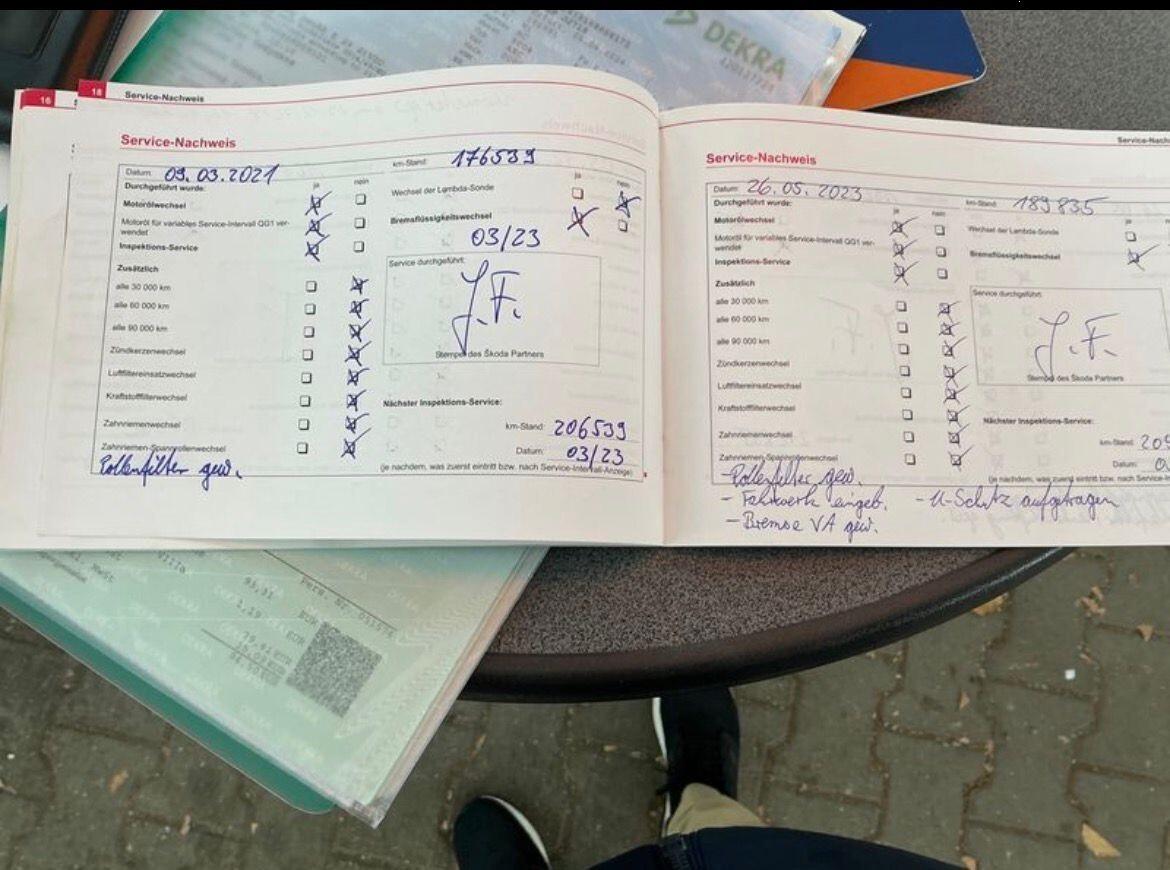 DEKRA
16
18 Service-Nachweis
Service-Nachweis
Datum: 09.03.2021
km-Stand: 176539
Durchgeführt wurde:
ja nein
Motorölwechsel
Motoröl für variables Service-Intervall QG1 ver-
wendet
Inspektions-Service
Zusätzlich
alle 30 000 km
alle 60 000 km
alle 90 000 km
Zündkerzenwechsel
Luftfiltereinsatzwechsel
Kraftstofffilterwechsel
Zahnriemenwechsel
Zahnriemen-Spannrollenwechsel
Pollenfilter gew.
ja nein
Wechsel der Lambda-Sonde
Bremsflüssigkeitswechsel
03/23
Service durchgeführt:
J.F.
Stempel des Škoda Partners
Nächster Inspektions-Service:
km-Stand: 206539
Datum: 03/23
(je nachdem, was zuerst eintritt bzw. nach Service-Intervall-Anzeige)
Service-Nachw
Service-Nachweis
Datum: 26.05.2023
km-Stand: 189835
Durchgeführt wurde:
ja nein
Motorölwechsel
Motoröl für variables Service-Intervall QG1 ver-
wendet
Inspektions-Service
Zusätzlich
alle 30 000 km
alle 60 000 km
alle 90 000 km
Zündkerzenwechsel
Luftfiltereinsatzwechsel
Kraftstofffilterwechsel
Zahnriemenwechsel
Zahnriemen-Spannrollenwechsel
- Pollenfilter gew.
- Fahrwerk eingeb.
- U-Schutz aufgetragen
- Bremse VA gew.
ja
Wechsel der Lambda-Sonde
Bremsflüssigkeitswechsel
Service durchgeführt:
J.F.
Stempel des Škoda Partners
Nächster Inspektions-Service:
km-Stand:
Datum:
(je nachdem, was zuerst eintritt bzw. nach Service-In
MwSt
93,31 EUR
1,19 EUR